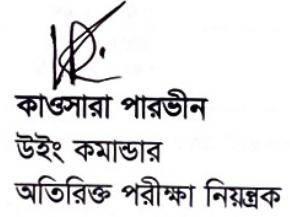 কাওসারা পারভীন
উইং কমান্ডার
অতিরিক্ত পরীক্ষা নিয়ন্ত্রক